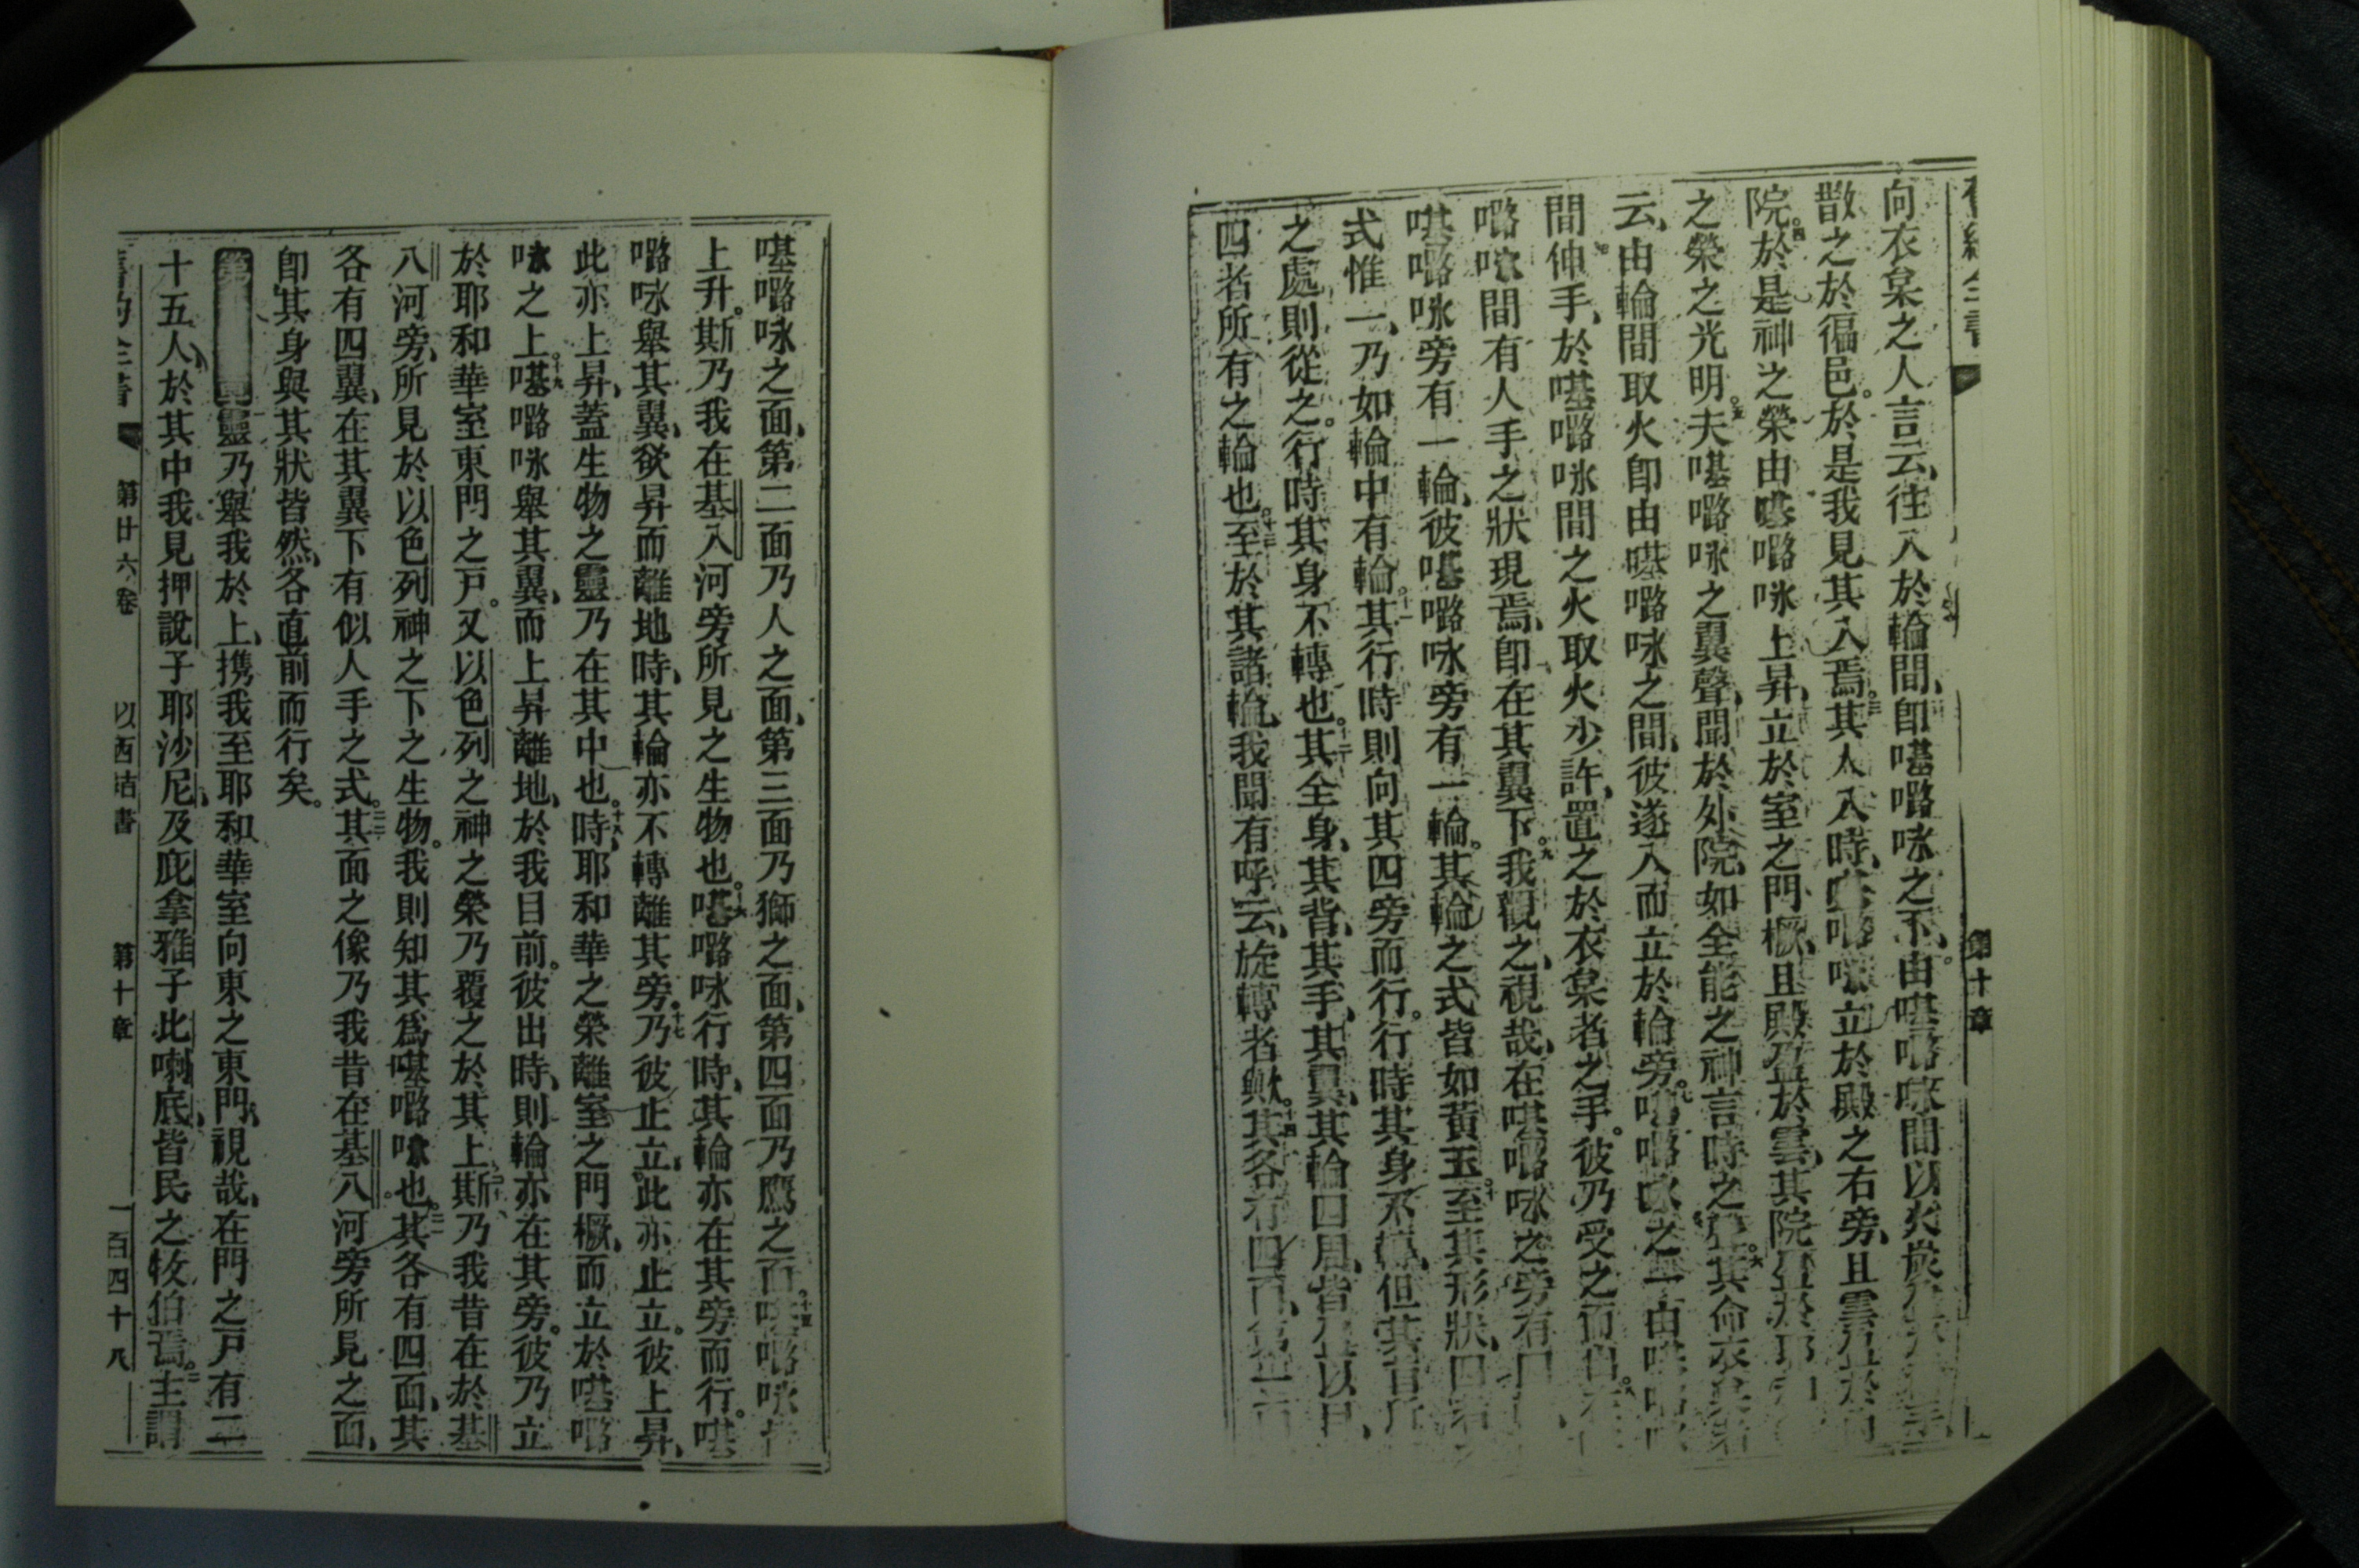 第十章
向衣枲之人言云、往入於輪間、卽㗛嚕咏之下、由㗛嚕咏間以火
散之於徧邑。於是我見其入焉。三其人入時、㗛嚕咏立於殿之右旁、且雲
院。四於是神之榮由㗛嚕咏上昇、立於室之門橛、且殿盈於雲、其院
之榮之光明。五夫㗛嚕咏之翼聲、聞於外院、如全能之神言時之 六其命衣枲
云、由輪間取火卽由㗛嚕咏之間、彼遂入而立於輪旁。七㗛嚕咏之一由
間伸手、於㗛嚕咏間之火取火少許、置之於衣枲者之手。彼乃受之而出。八
嚕咏間有人手之狀現焉、卽在其翼下。九我觀之、視哉、在㗛嚕咏之旁有四
㗛嚕咏旁有一輪、彼㗛嚕咏旁有一輪。其輪之式皆如黃玉。十至其形狀、四
式惟一、乃如輪中有輪。十一其行時則向其四旁而行。行時其身不轉、但其首
之處、則從之。行時其身不轉也。十二其全身、其背、其手、其翼、其輪四周、皆 以目、
四者所有之輪也。十三至於其諸輪、我聞有呼云、旋轉者歟。十四其各有四面、
㗛嚕咏之面、第二面乃人之面、第三面乃獅之面、第四面乃鷹之面。十五㗛嚕咏
上升。斯乃我在基八河旁所見之生物也。十六㗛嚕咏行時、其輪亦在其旁而行。㗛
嚕咏舉其翼、欲昇而離地時、其輪亦不轉離其旁。十七乃彼止立、此亦止立。彼上昇、
此亦上昇、蓋生物之靈乃在其中也。十八時、耶和華之榮離室之門橛、而立於㗛嚕
咏之上。十九㗛嚕咏舉其翼、而上昇離地、於我目前。彼出時、則輪亦在其旁。彼乃立
於耶和華室東門之戸。又以色列之神之榮乃覆之於其上、二十斯乃我昔在於基
八河旁、所見於以色列神之下之生物。我則知其爲㗛嚕咏也。二一其各有四面、其
各有四翼、在其翼下有似人手之式。二二其面之像乃我昔在基八河旁所見之面、
卽其身與其狀皆然、各直前而行矣。
靈乃舉我於上、携我至耶和華室向東之東門、視哉、在門之戸有二
十五人、於其中我見押説子耶沙尼、及庇拿雅子此喇底、皆民之牧伯焉。二主謂
第廿六卷 以西結書 第十章 一百四十八